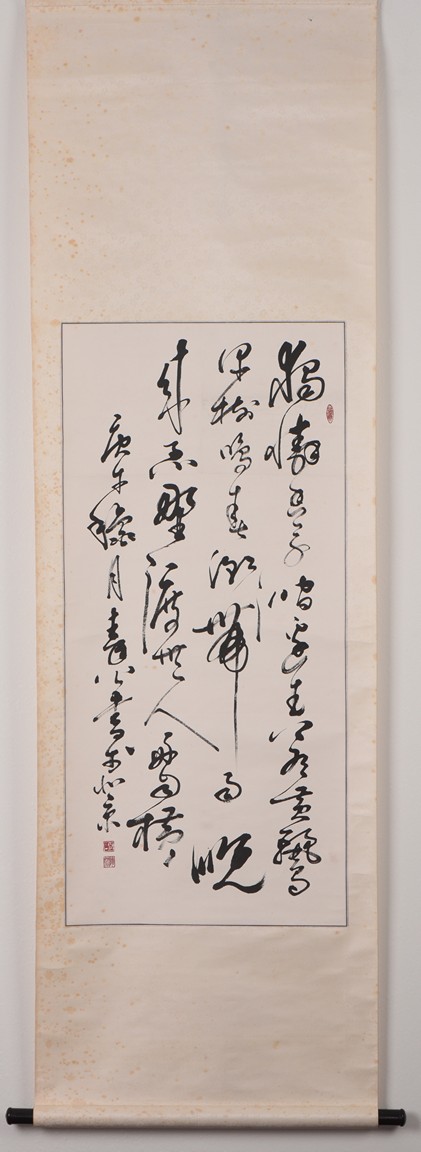 獨憐幽草澗邊生上有黃鸝
深樹鳴春潮帶雨晚
來急野渡無人舟自橫
庚午穐月公書於北京